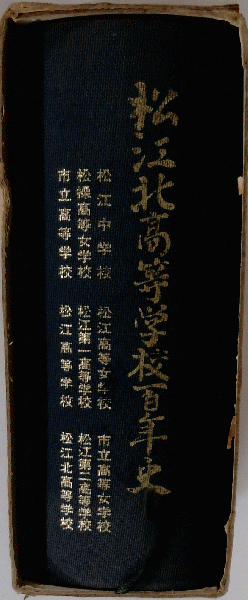 松江北高等学校百年史
松江中学校　松江高等女学校　市立高等女学校
松操高等女学校　松江第一高等学校　松江第二高等学校
市立高等学校　松江高等学校　松江北高等学校